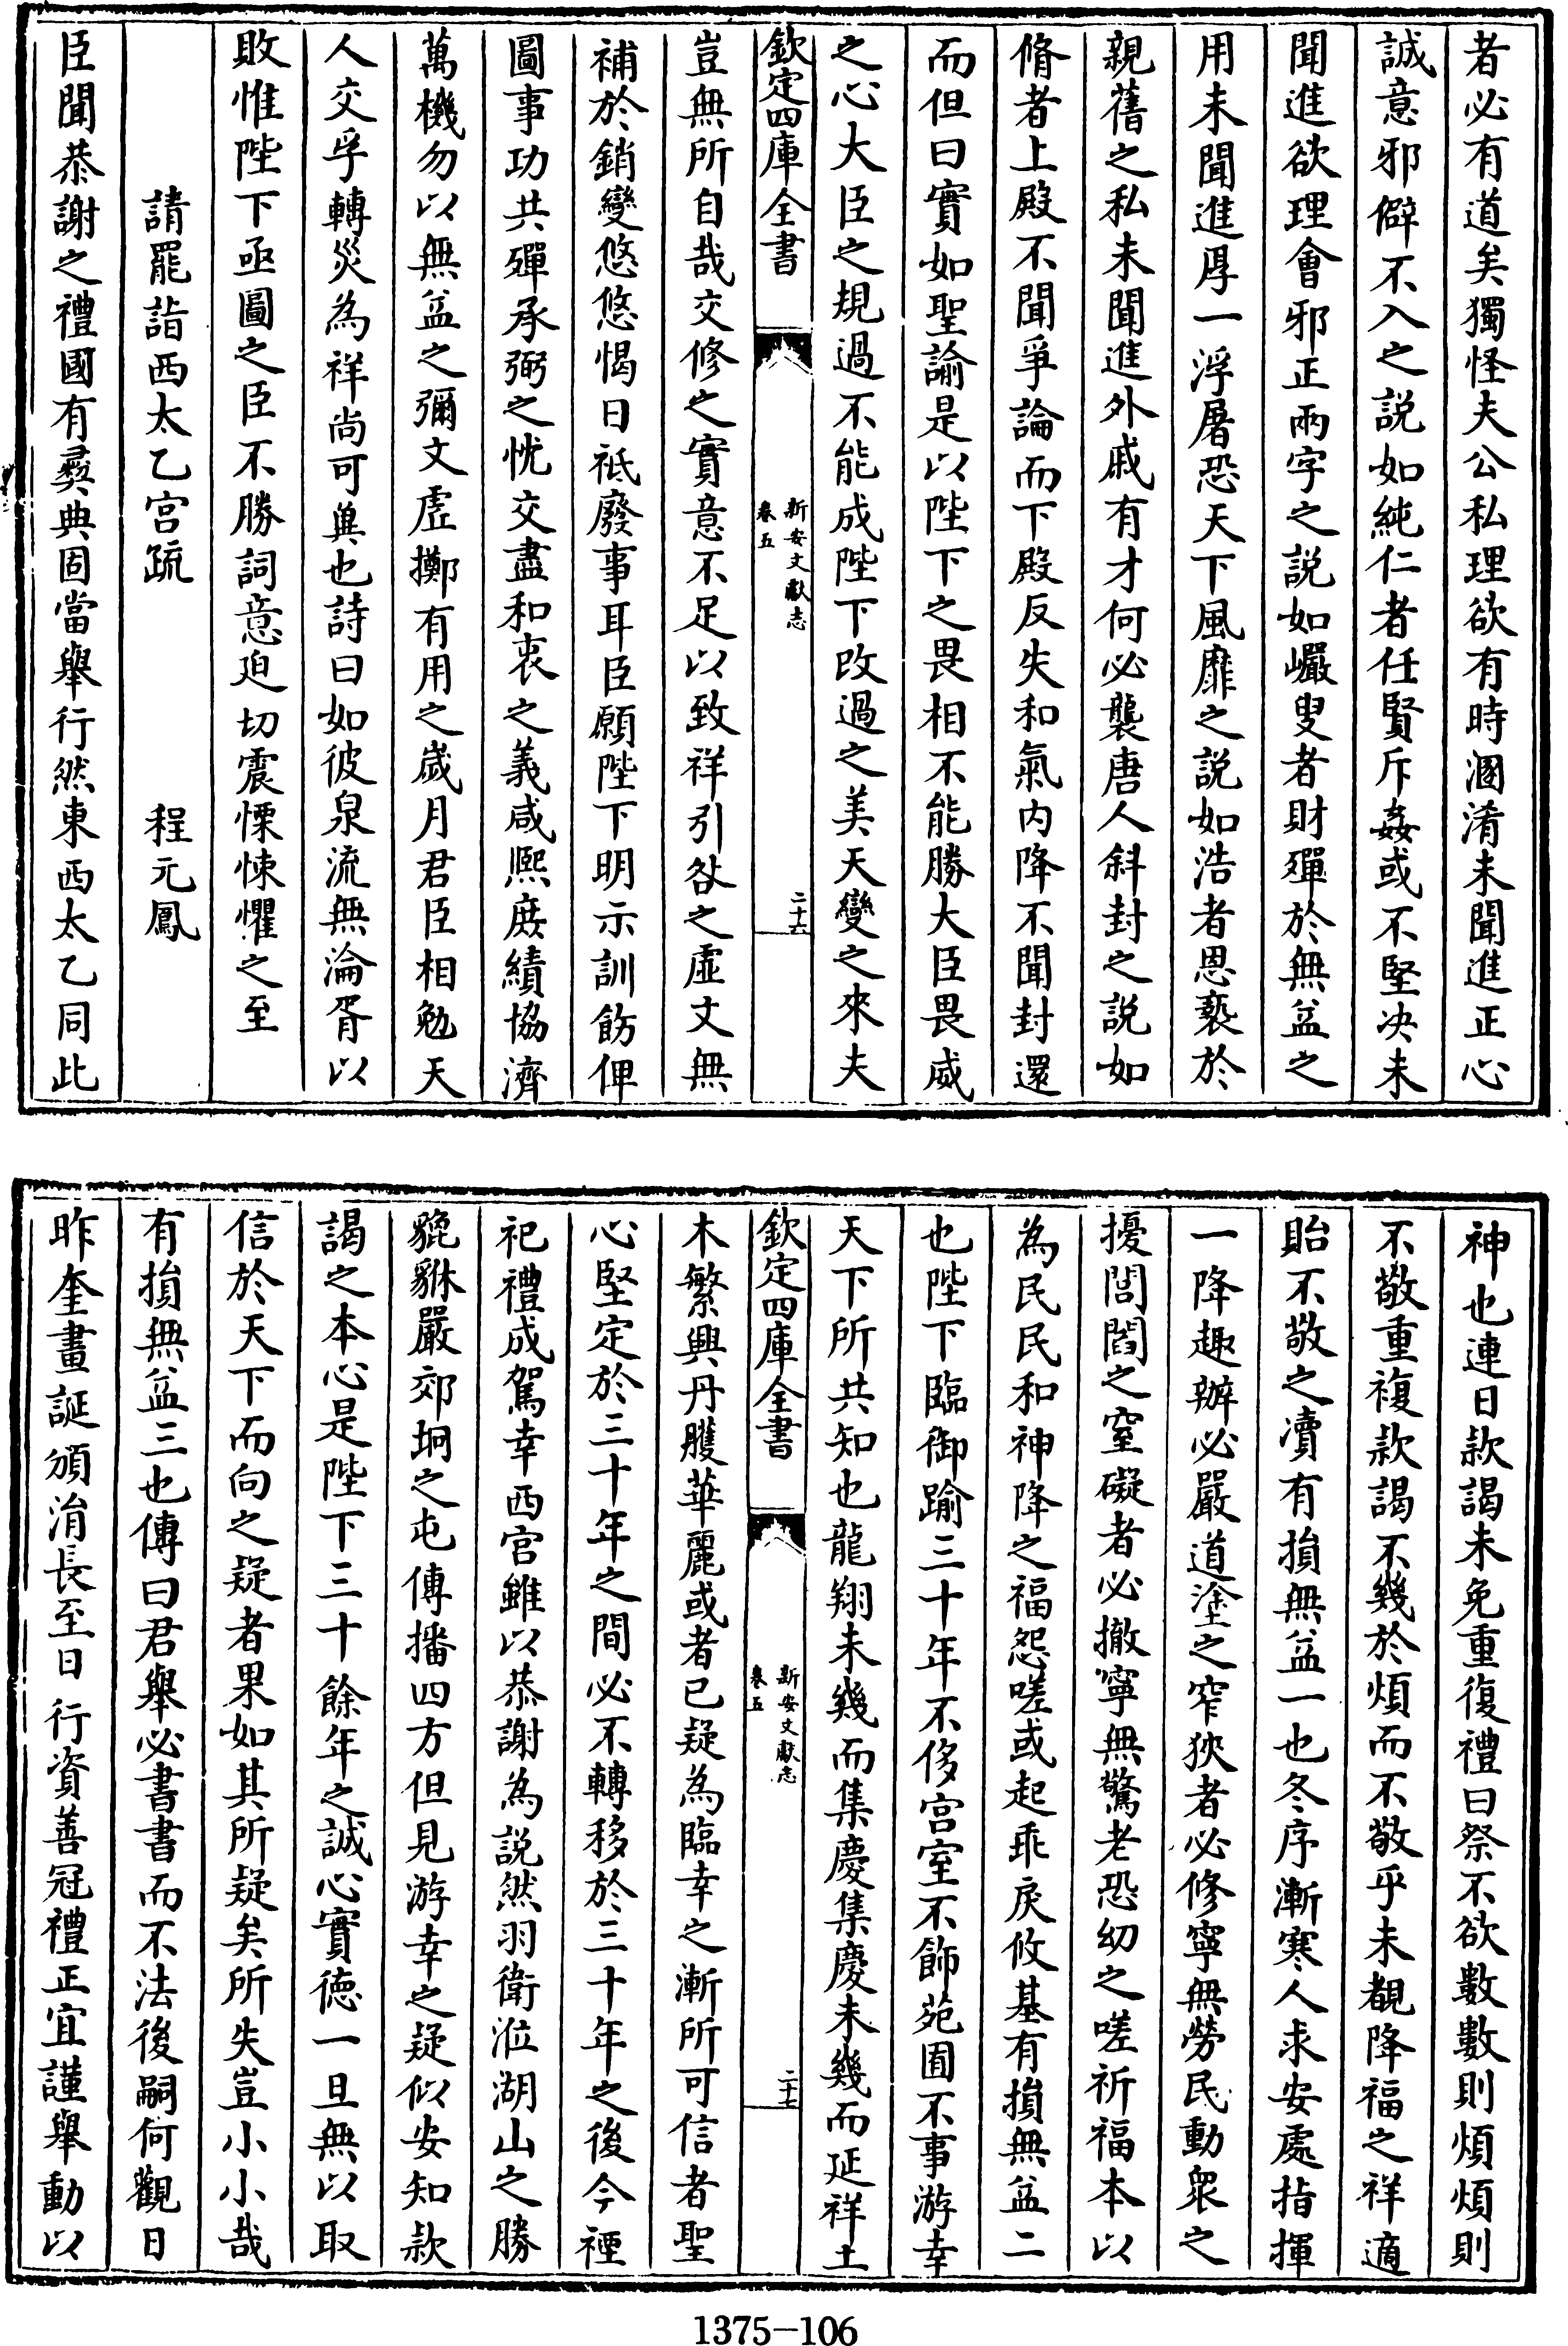 者必有道矣獨怪夫公私理欲有時溷淆未聞進正心
誠意邪僻不入之説如純仁者任賢斥姦或不堅决未
聞進欲理會邪正兩字之説如巗叟者財殫於無益之
用未聞進厚一浮屠恐天下風靡之説如浩者恩褻於
親舊之私未聞進外戚有才何必襲唐人斜封之説如
脩者上殿不聞爭論而下殿反失和氣内降不聞封還
而但曰實如聖諭是以陛下之畏相不能勝大臣畏威
之心大臣之規過不能成陛下改過之美天變之來夫
欽定四庫全書
新安文獻志
卷五
二十六
豈無所自哉交修之實意不足以致祥引咎之虛文無
補於銷變悠悠愒日祗廢事耳臣願陛下明示訓飭俾
圖事功共殫承弼之忱交盡和衷之義咸熙庶績協濟
萬機勿以無益之彌文虛擲有用之嵗月君臣相勉天
人交孚轉災為祥尚可兾也詩曰如彼泉流無淪胥以
敗惟陛下亟圖之臣不勝詞意迫切震慄悚懼之至
請罷詣西太乙宫疏 程元鳳
臣聞恭謝之禮國有彛典固當舉行然東西太乙同此
神也連日款謁未免重復禮曰祭不欲數數則煩煩則
不敬重複款謁不幾於煩而不敬乎未覩降福之祥適
貽不敬之瀆有損無益一也冬序漸寒人求安處指揮
一降趣辦必嚴道塗之窄狹者必修寧無勞民動衆之
擾閭閻之窒礙者必撤寧無驚老恐幼之嗟祈福本以
為民民和神降之福怨嗟或起乖戾攸基有損無益二
也陛下臨御踰三十年不侈宫室不飾苑囿不事游幸
天下所共知也龍翔未幾而集慶集慶未幾而延祥土
欽定四庫全書
新安文獻志
卷五
二十七
木繁興丹雘華麗或者已疑為臨幸之漸所可信者聖
心堅定於三十年之間必不轉移於三十年之後今禋
祀禮成駕幸西宫雖以恭謝為説然羽衛涖湖山之勝
貔貅嚴郊坰之屯傳播四方但見游幸之疑似安知款
謁之本心是陛下三十餘年之誠心實徳一旦無以取
信於天下而向之疑者果如其所疑矣所失豈小小哉
有損無益三也傳曰君舉必書書而不法後嗣何觀日
昨奎畫誕頒涓長至日行資善冠禮正宜謹舉動以
1375-106